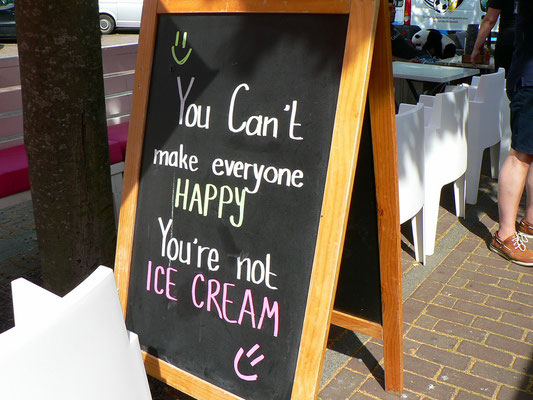 You Can't
make everyone
HAPPY
You're not
ICE CREAM